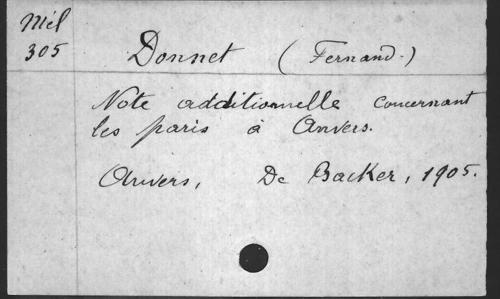 Mél
305
Donnet (Fernand.)
Note additionnelle concernant
les paris à Anvers.
Anvers, De Backer, 1905.